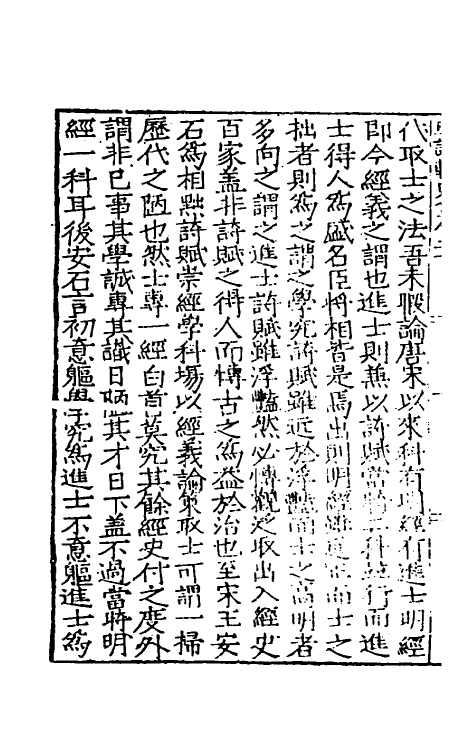 代取士之法吾未暇論唐宋以來科有明經有進士明經
即今經義之謂也進士則兼以詩賦當時二科並行而進
士得人爲盛名臣將相皆是焉出則明經雖近正而士之
拙者則爲之謂之學究詩賦雖近於浮艷而士之高明者
多向之謂之進士詩賦雖浮豔然必博觀泛取出入經史
百家盖非詩賦之得人而博古之爲益於治也至宋王安
石爲相黜詩賦崇經學科場以經義論策取士可謂一掃
歷代之陋也然士專一經白首莫究其餘經史付之度外
謂非己事其學誠專其識日陋其才日下盖不過當時明
經一科耳後安石言初意驅學究爲進士不意驅進士爲